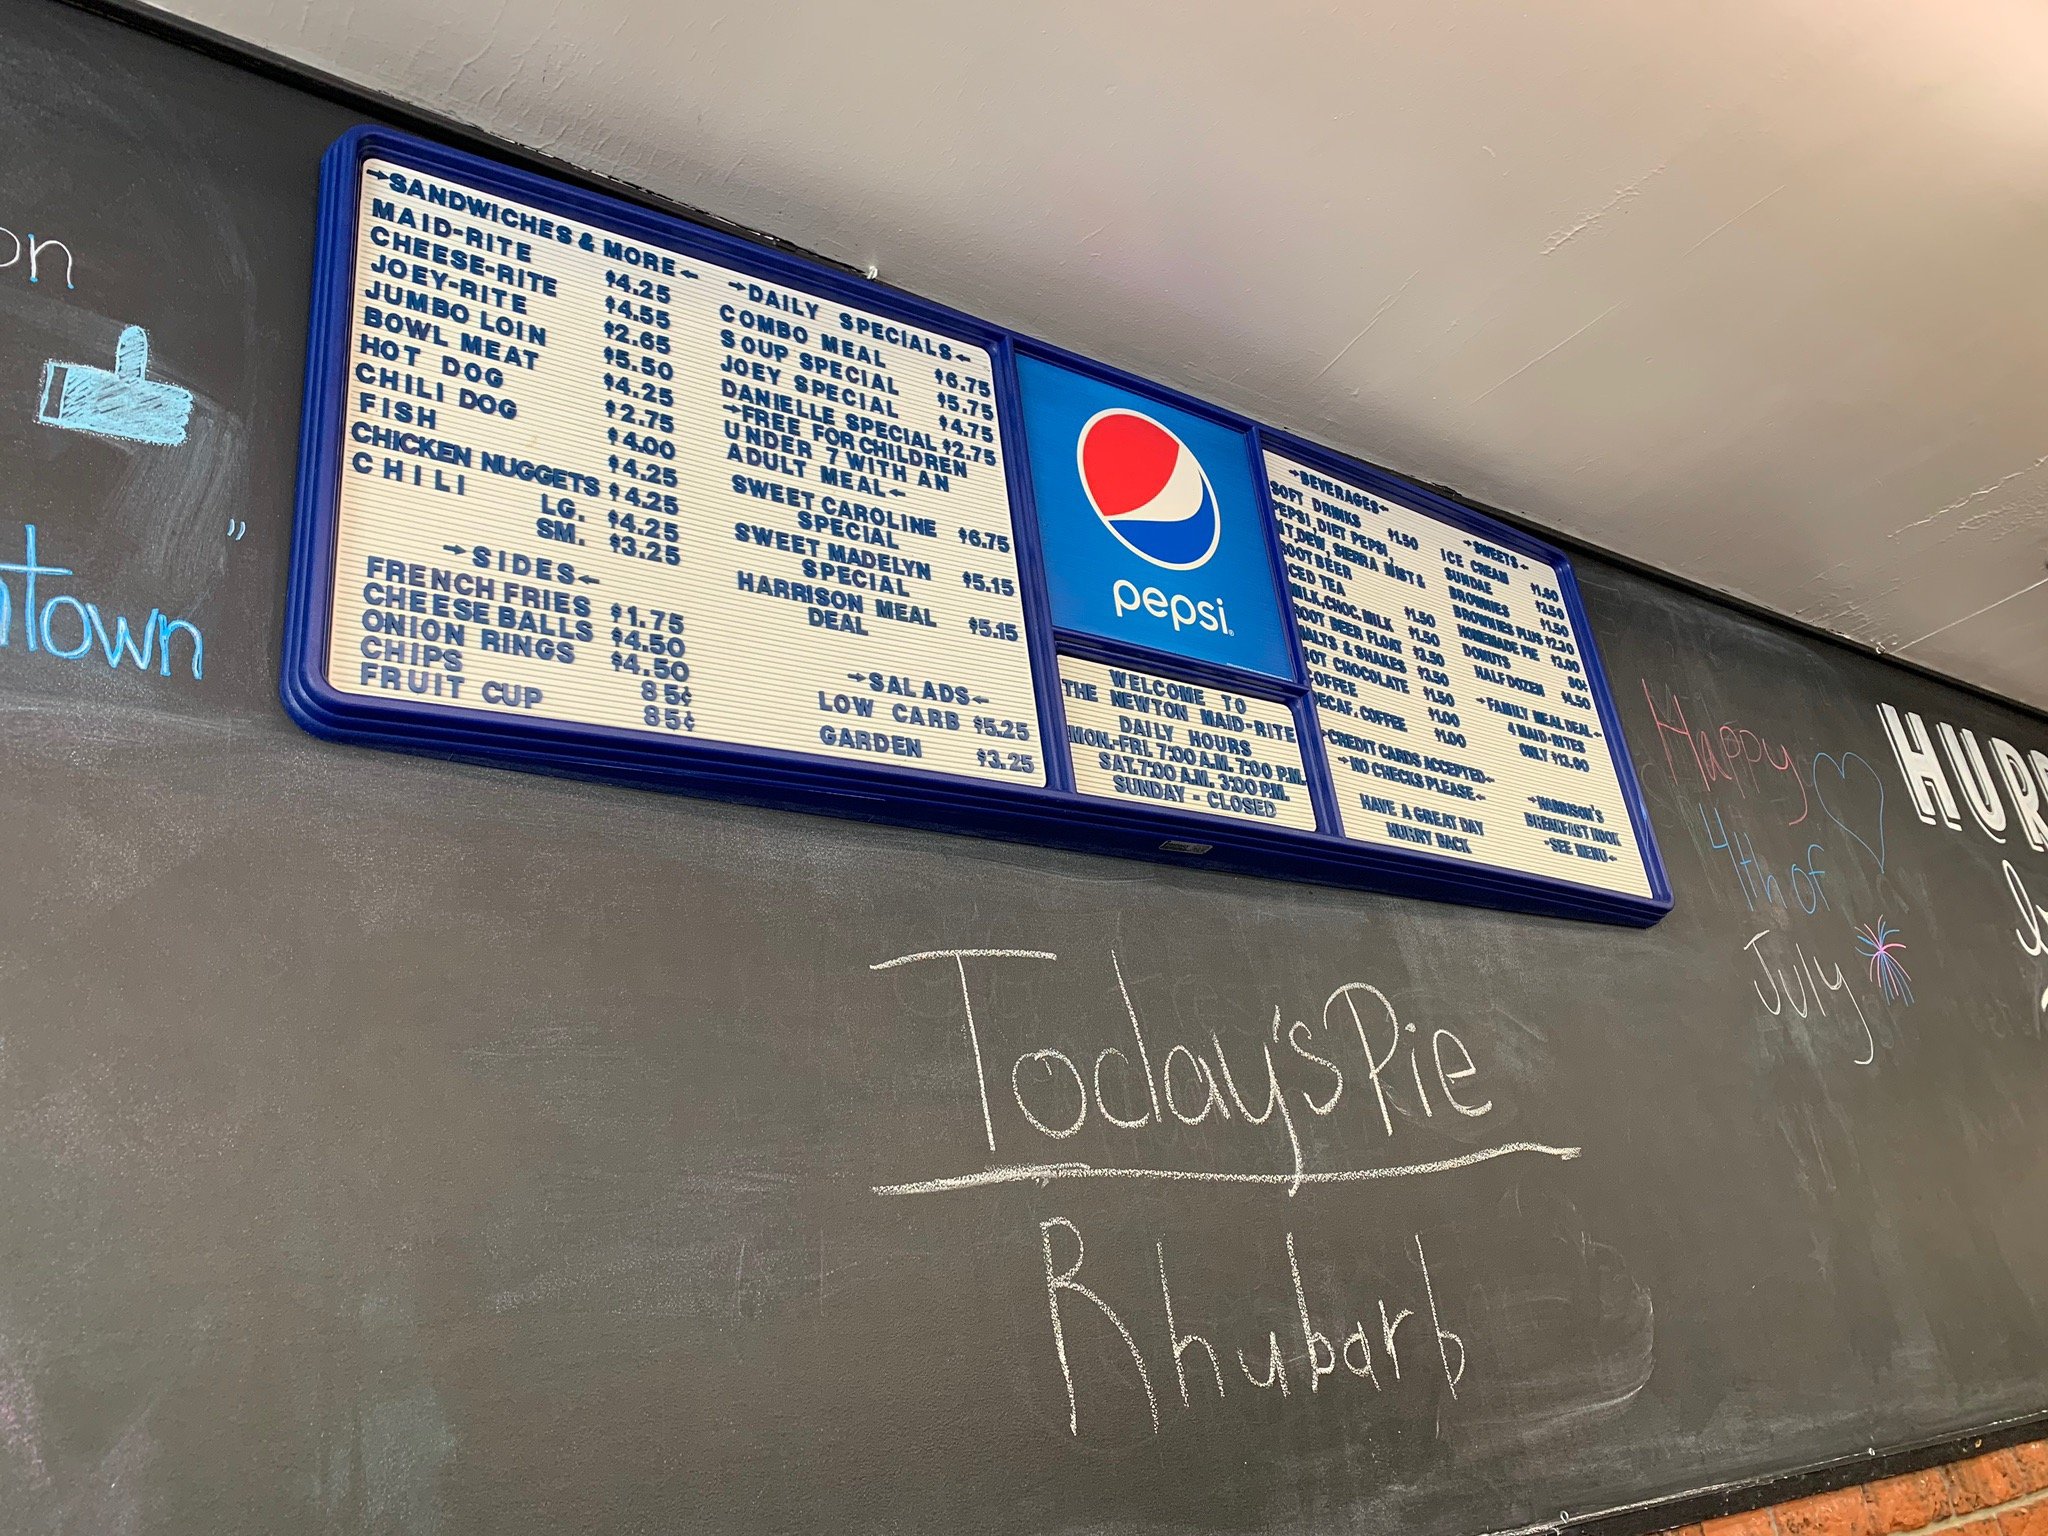 on
"
ntown
→SANDWICHES & MORE←
MAID-RITE $4.25
CHEESE-RITE $4.55
JOEY-RITE $2.65
JUMBO LOIN $5.50
BOWL MEAT $4.25
HOT DOG $2.75
CHILI DOG $4.00
FISH $4.25
CHICKEN NUGGETS $4.25
CHILI LG. $4.25
SM. $3.25
→SIDES←
FRENCH FRIES $1.75
CHEESE BALLS $4.50
ONION RINGS $4.50
CHIPS 85¢
FRUIT CUP 85¢
→DAILY SPECIALS←
COMBO MEAL $6.75
SOUP SPECIAL $5.75
JOEY SPECIAL $4.75
DANIELLE SPECIAL $2.75
→FREE FOR CHILDREN
UNDER 7 WITH AN
ADULT MEAL←
SWEET CAROLINE
SPECIAL $6.75
SWEET MADELYN
SPECIAL $5.15
HARRISON MEAL
DEAL $5.15
→SALADS←
LOW CARB $5.25
GARDEN $3.25
pepsi
WELCOME TO
THE NEWTON MAID-RITE
DAILY HOURS
MON.-FRI. 7:00 A.M. 7:00 P.M.
SAT. 7:00 A.M. 3:00 P.M.
SUNDAY - CLOSED
→BEVERAGES←
SOFT DRINKS $1.50
PEPSI, DIET PEPSI,
MT. DEW, SIERRA MIST &
ROOT BEER
ICED TEA $1.50
MILK, CHOC. MILK $1.50
ROOT BEER FLOAT $3.50
MALTS & SHAKES $3.50
HOT CHOCOLATE $1.50
COFFEE $1.00
DECAF. COFFEE $1.00
→CREDIT CARDS ACCEPTED←
→NO CHECKS PLEASE←
HAVE A GREAT DAY
HURRY BACK
→SWEETS←
ICE CREAM
SUNDAE $2.50
BROWNIES $1.50
BROWNIES PLUS
HOMEMADE PIE
DONUTS
HALF DOZEN $4.50
→FAMILY MEAL DEAL←
4 MAID-RITES
ONLY
→HARRISON'S
BREAKFAST NOOK
→SEE MENU←
Happy
4th of
July
HURR
Today's Pie
Rhubarb